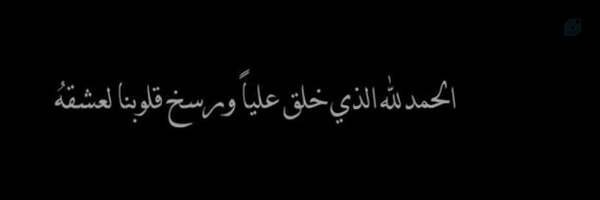 الحمد لله الذي خلق علياً ورسخ قلوبنا لعشقهُ